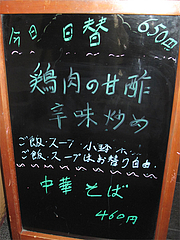 今日 日替 650円
鶏肉の甘酢
辛味炒め
ご飯・スープ 小鉢
ご飯・スープはお替り自由
中華そば
460円